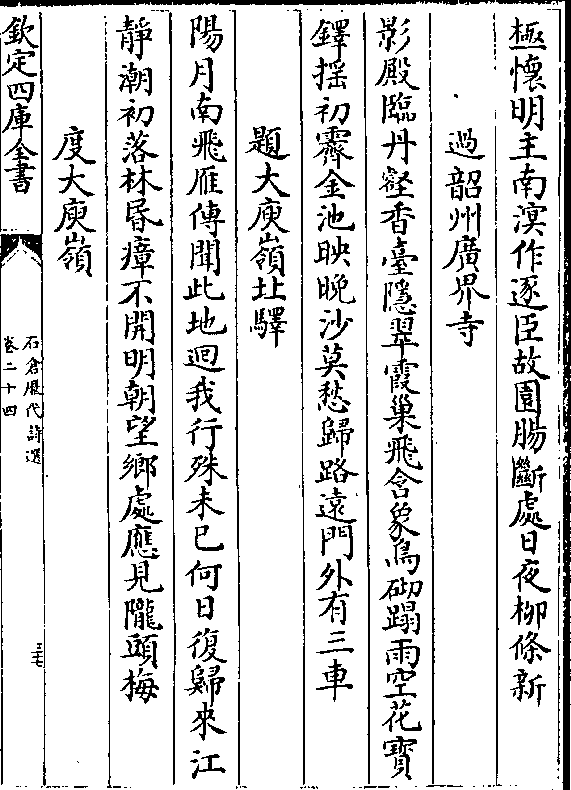 極懷明主南溟作逐臣故園腸斷處日夜柳條新
過韶州廣界寺
影殿臨丹壑香臺隱翠霞巢飛含象鳥砌蹋雨空花寳
鐸揺初霽金池映晚沙莫愁歸路遠門外有三車
題大庾嶺北驛
陽月南飛雁傳聞此地迴我行殊未已何日復歸來江
靜潮初落林昏瘴不開明朝望鄉處應見隴頭梅
度大庾嶺
欽定四庫全書
石倉歷代詩選
卷二十四
三七